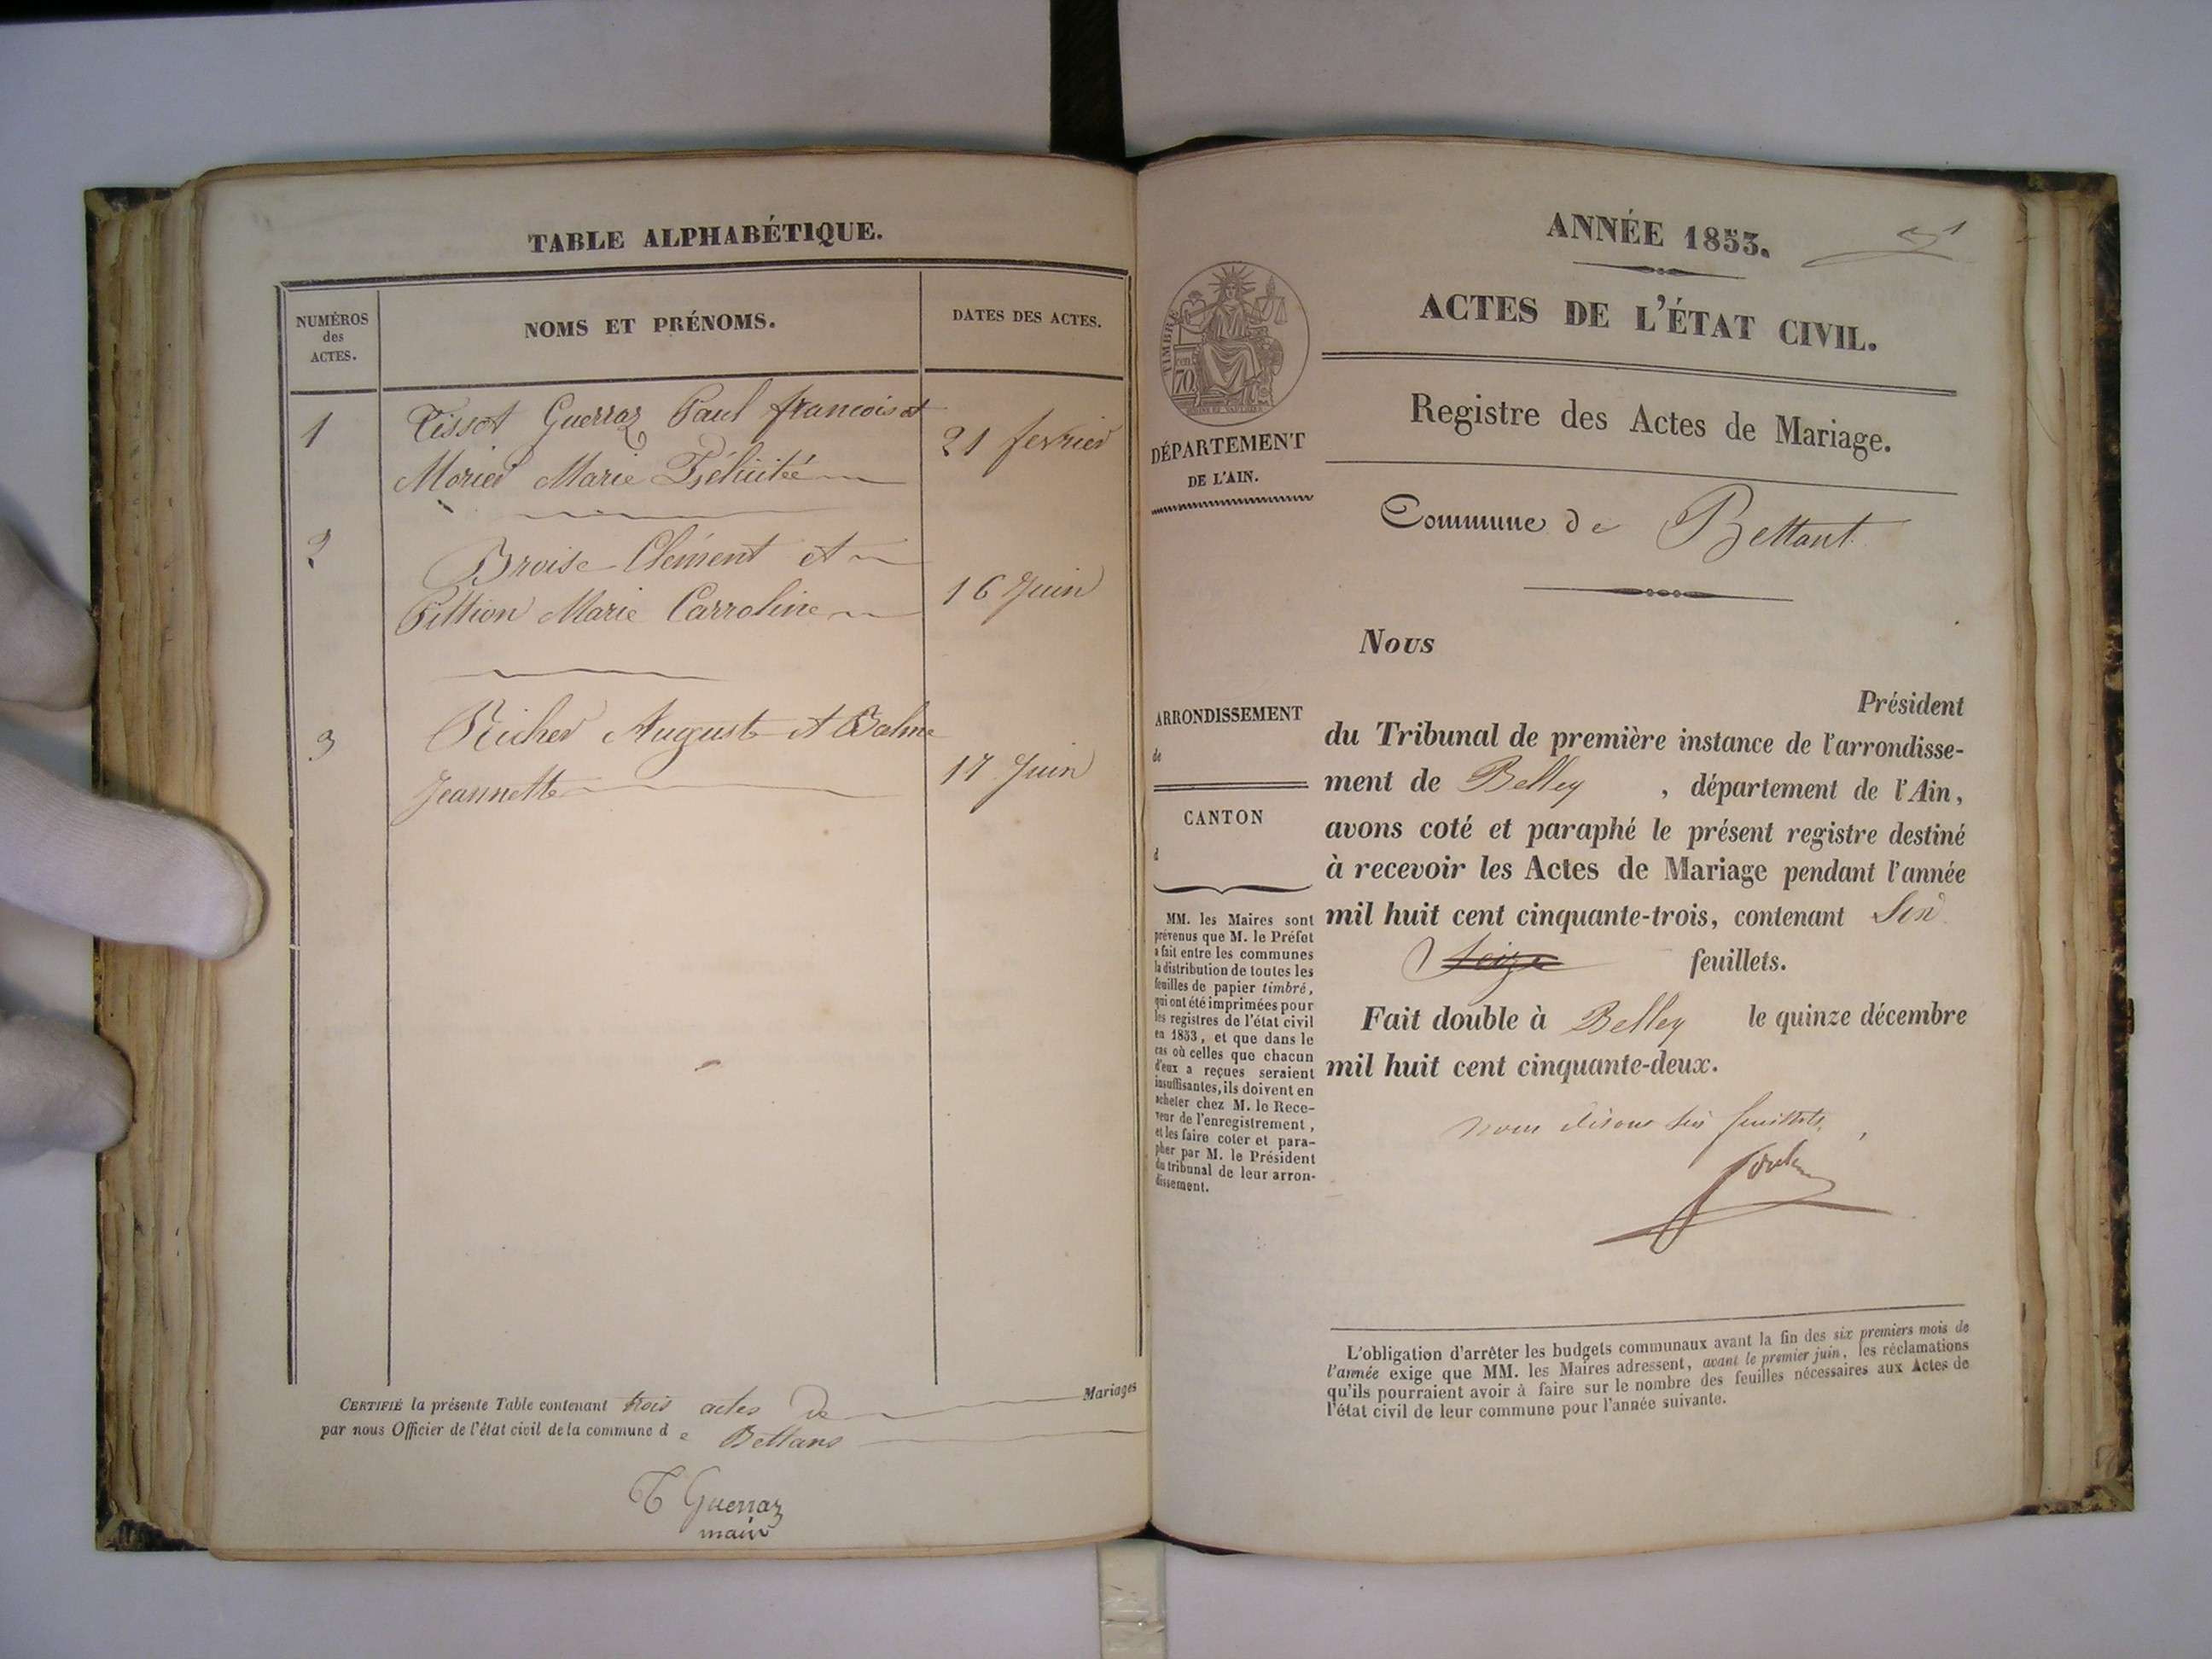 TABLE ALPHABÉTIQUE.
NUMÉROS
des
ACTES.
NOMS ET PRÉNOMS.
DATES DES ACTES.
1
Tissot Guerraz Paul francois et
Morier Marie Félicitée
21 fevrier
2
Broise Clément et
Pittion Marie Carroline
16 Juin
3
Richer August et Balme
Jeannette
17 Juin
CERTIFIÉ la présente Table contenant trois actes De Mariages
par nous Officier de l'état civil de la commune d e Bettans
T Guerraz
maire
ANNÉE 1853.
ACTES DE L'ÉTAT CIVIL.
Registre des Actes de Mariage.
TIMBRE
70
DÉPARTEMENT
DE L'AIN.
Commune de Bettant
ARRONDISSEMENT
de
CANTON
d
MM. les Maires sont
prévenus que M. le Préfet
a fait entre les communes
la distribution de toutes les
feuilles de papier timbré,
qui ont été imprimées pour
les registres de l'état civil
en 1853, et que dans le
cas où celles que chacun
d'eux a reçues seraient
insuffisantes, ils doivent en
acheter chez M. le Rece-
veur de l'enregistrement,
et les faire coter et para-
pher par M. le Président
du tribunal de leur arron-
dissement.
Nous
Président
du Tribunal de première instance de l'arrondisse-
ment de Belley , département de l'Ain,
avons coté et paraphé le présent registre destiné
à recevoir les Actes de Mariage pendant l'année
mil huit cent cinquante-trois, contenant Six
Seize feuillets.
Fait double à Belley le quinze décembre
mil huit cent cinquante-deux.
nous disons six feuillets,
L'obligation d'arrêter les budgets communaux avant la fin des six premiers mois de
l'année exige que MM. les Maires adressent, avant le premier juin, les réclamations
qu'ils pourraient avoir à faire sur le nombre des feuilles nécessaires aux Actes de
l'état civil de leur commune pour l'année suivante.